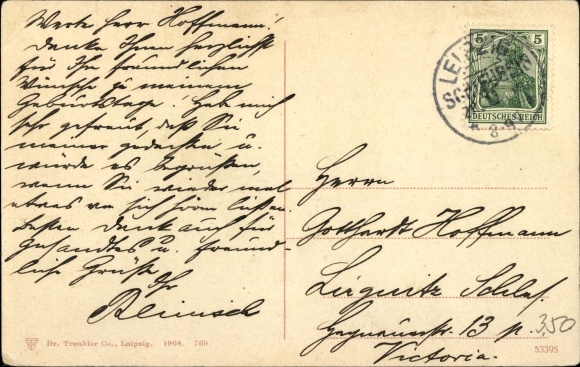 Werter Herr Hoffmann!
Danke Ihnen herzlichst
für Ihre freundlichen
Wünsche zu meinem
Geburtstage. Hab mich
sehr gefreut, daß Sie
meiner gedachten u.
würde es begrüßen,
wenn Sie wieder mal
etwas von sich hören ließen.
Besten Dank auch für
Gesandtes u. freund-
liche Grüße
Ihr
5 5
LEIPZIG
DEUTSCHES REICH
8-9
Herrn
Gotthardt Hoffmann
Liegnitz Schles.
Haynauerstr. 13 p.
Victoria.
350
Dr. Trenkler Co., Leipzig. 1908. 760.
53395